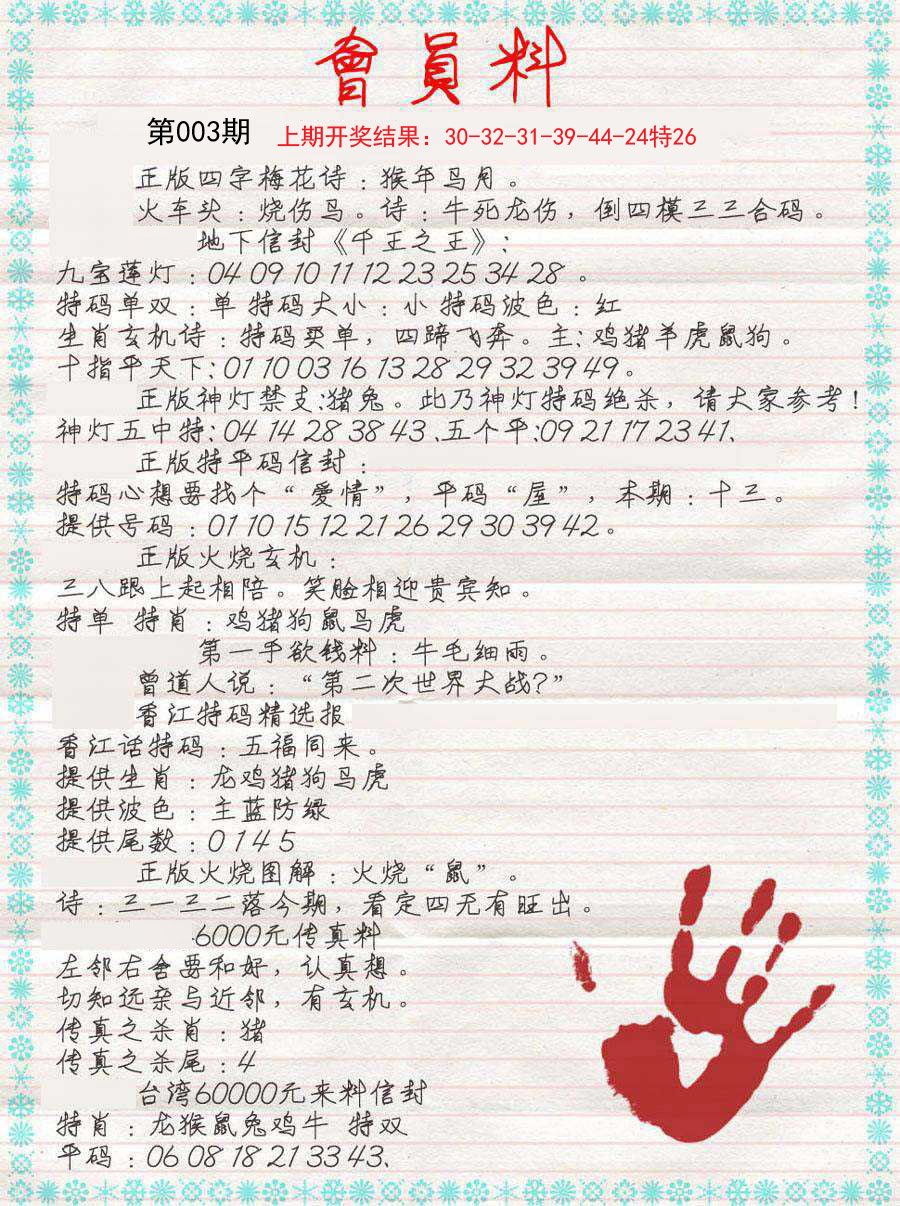 會員料
第003期 上期开奖结果：30-32-31-39-44-24特26
正版四字梅花诗：猴年马月。
火车头：烧伤鸟。诗：牛死龙伤，倒四模三三合码。
地下信封《千王之王》：
九宝莲灯：04 09 10 11 12 23 25 34 28 。
特码单双：单 特码大小：小 特码波色：红
生肖玄机诗：特码买单，四蹄飞奔。主：鸡猪羊虎鼠狗。
十指平天下：01 10 03 16 13 28 29 32 39 49。
正版神灯禁支：猪兔。此乃神灯特码绝杀，请大家参考！
神灯五中特：04 14 28 38 43 、五个平：09 21 17 23 41、
正版特平码信封：
特码心想要找个“爱情”，平码“屋”，本期：十三。
提供号码：01 10 15 12 21 26 29 30 39 42。
正版火烧玄机：
三八跟上起相陪。笑脸相迎贵宾知。
特单 特肖：鸡猪狗鼠马虎
第一手欲钱料：牛毛细雨。
曾道人说：“第二次世界大战?”
香江特码精选报
香江话特码：五福同来。
提供生肖：龙鸡猪狗马虎
提供波色：主蓝防绿
提供尾数：0 1 4 5
正版火烧图解：火烧“鼠”。
诗：三一三二落今期，看定四无有旺出。
6000元传真料
左邻右舍要和好，认真想。
切知远亲与近邻，有玄机。
传真之杀肖：猪
传真之杀尾：4
台湾60000元来料信封
特肖：龙猴鼠兔鸡牛 特双
平码：06 08 18 21 33 43、